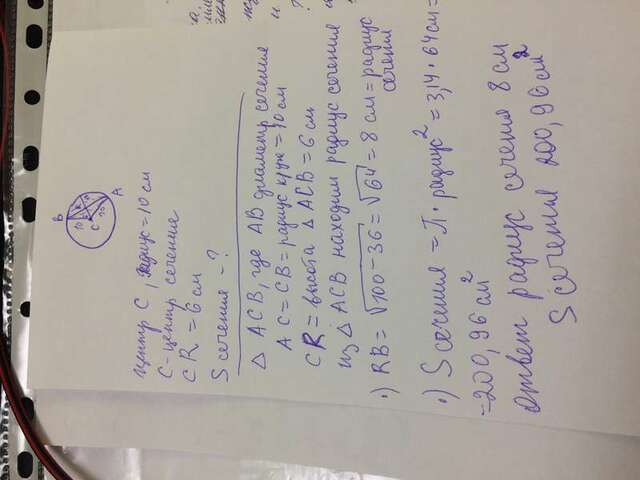 B
A
10
C
10
центр С, радиус = 10 см
С - центр сечение
CR = 6 см
S сечения - ?
△ ACB, где AB диаметр сечение
AC = CB = радиус круж = 10 см
CR = высота △ ACB = 6 см
из △ ACB находим радиус сечения
·) RB = √100 - 36 = √64 = 8 см = радиус
сечения
·) S сечения = П · радиус² = 3,14 · 64 см =
= 200,96 см²
Ответ радиус сечения 8 см
S сечения 200,96 см²